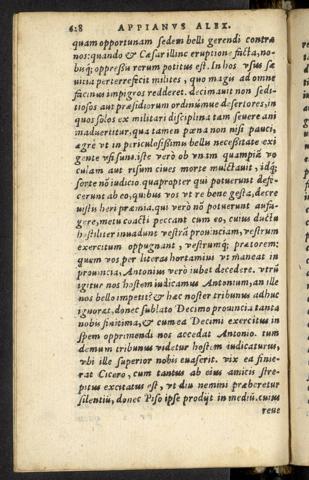 628 APPIANVS ALEX.
quam opportunam sedem belli gerendi contra
nos: quando & Cæsar illinc eruptione facta, no-
bisq; oppressis rerum potitus est. In hos vsus sæ
uitia perterrefecit milites, quo magis ad omne
facinus impigros redderet. decimauit non sedi
tiosos aut præsidiorum ordinúmue desertores, in
quos solos ex militari disciplina tam seuere ani
maduertitur, qua tamen pœna non nisi pauci,
ægrè vt in periculosissimis bellis necessitate exi
gente vsi sunt. iste verò ob vnum quampiã vo
culam aut risum ciues morte mulctauit, idq;
sorte nõ iudicio. quapropter qui potuerunt defe-
cerunt ab eo, quibus vos vt re bene gesta, decre
uistis heri præmia. qui verò nõ potuerunt aufu-
gere, metu coacti peccant cum eo, cuius ductu
hostiliter inuadunt vestrã prouinciam, vestrum
exercitum oppugnant, vestrumq; prætorem:
quem vos per literas hortamini vt maneat in
prouincia, Antonius verò iubet decedere. vtrũ
igitur nos hostem iudicamus Antonium, an ille
nos bello impetit? & hæc noster tribunus adhuc
ignorat, donec sublato Decimo prouincia tanta
nobis finitima, & cum ea Decimi exercitus in
spem opprimendi nos accedat Antonio. tum
demum tribunus videtur hostem iudicaturus,
vbi ille superior nobis euaserit. vix ea finie-
rat Cicero, cum tantus ab eius amicis stre-
pitus excitatus est, vt diu nemini præberetur
silentiũ, donec Piso ipse prodijt in mediũ. cuius
reue